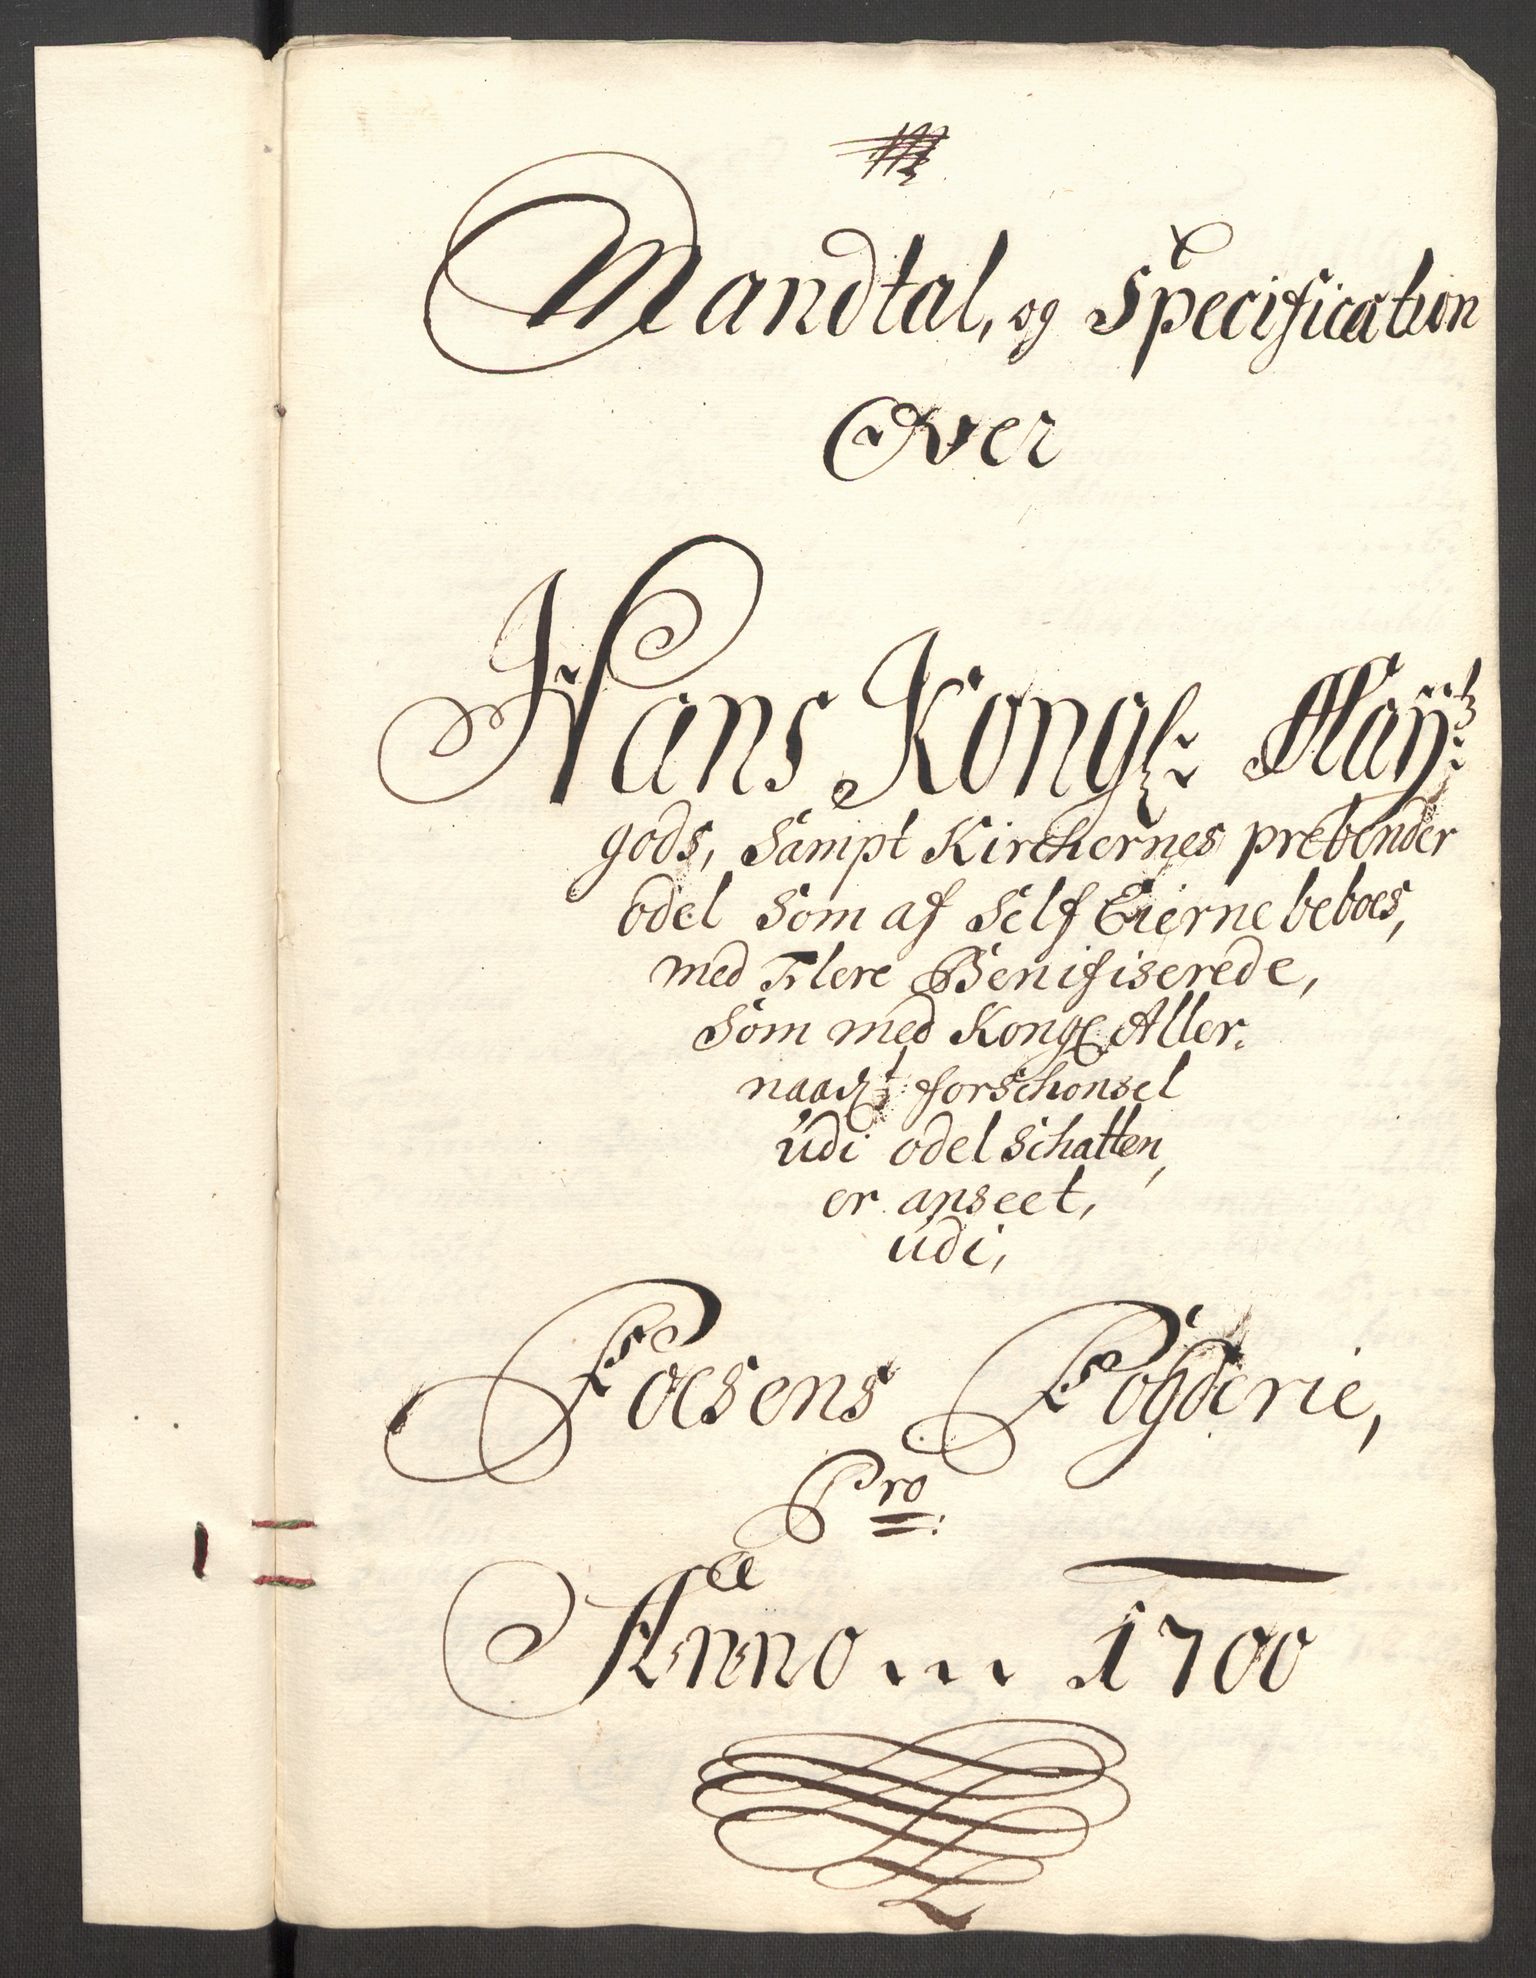 Mandtal, og Specification
Over
Hans Kongl: Mayts:
gods, Sampt Kirchernes prebender
odel Som af Self Eierne beboes,
med Flere Benifiserede,
Som med Kongl Aller:
naadt forschonsel
udi odel schatten,
er anseet,
udi,
Foesens Fogderie,
Pro:
Anno ... 1700